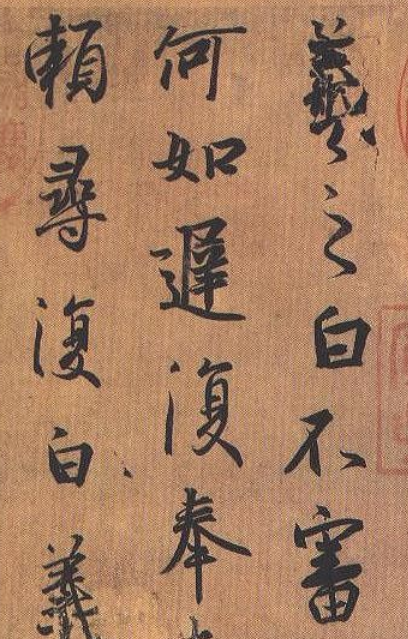 羲之白不審
何如遲復奉
賴尋復白羲